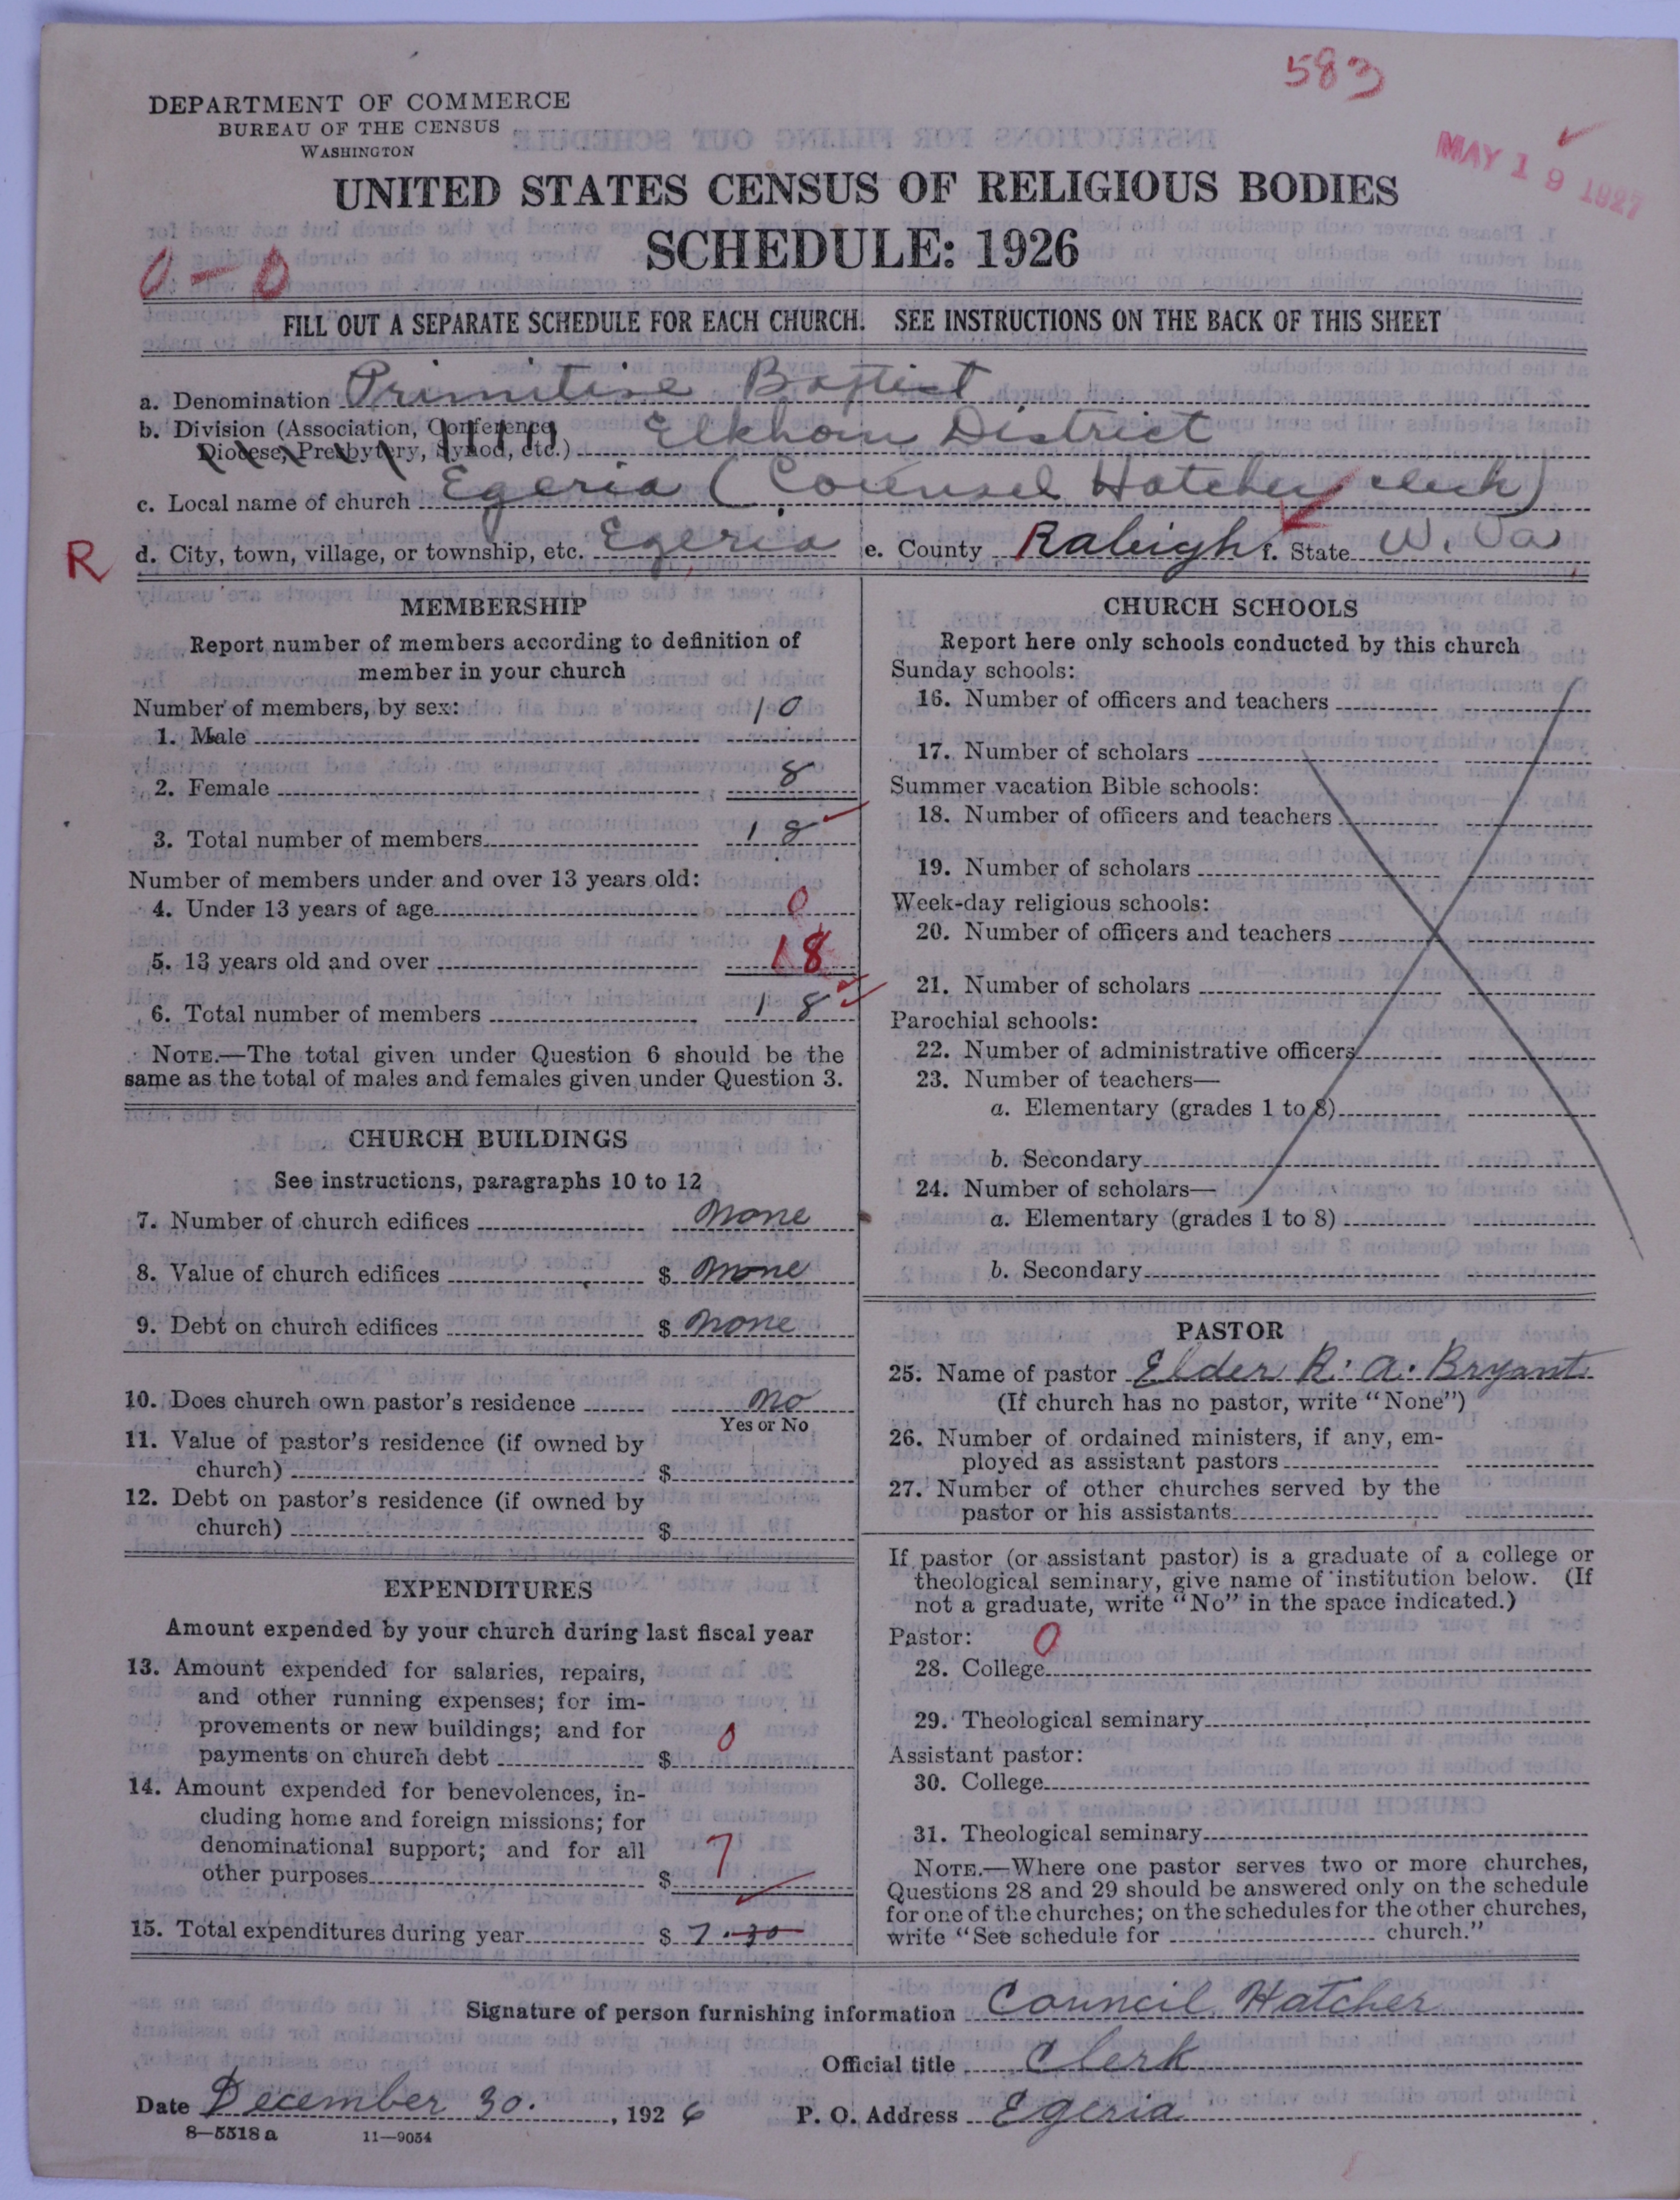 583
DEPARTMENT OF COMMERCE
BUREAU OF THE CENSUS
WASHINGTON
MAY 19 1927
UNITED STATES CENSUS OF RELIGIOUS BODIES
SCHEDULE: 1926
0-0
FILL OUT A SEPARATE SCHEDULE FOR EACH CHURCH. SEE INSTRUCTIONS ON THE BACK OF THIS SHEET
a. Denomination Primitive Baptist
b. Division (Association, Conference,
Diocese, Presbytery, Synod, etc.) Elkhorn District
c. Local name of church Egeria (Counsel Hatcher clerk)
R d. City, town, village, or township, etc. Egeria e. County Raleigh f. State W. Va.
MEMBERSHIP
Report number of members according to definition of
member in your church
Number of members, by sex:
1. Male 10
2. Female 8
3. Total number of members 18
Number of members under and over 13 years old:
4. Under 13 years of age 0
5. 13 years old and over 18
6. Total number of members 18
NOTE.—The total given under Question 6 should be the
same as the total of males and females given under Question 3.
CHURCH BUILDINGS
See instructions, paragraphs 10 to 12
7. Number of church edifices none
8. Value of church edifices $ none
9. Debt on church edifices $ none
10. Does church own pastor's residence no
Yes or No
11. Value of pastor's residence (if owned by
church) $
12. Debt on pastor's residence (if owned by
church) $
EXPENDITURES
Amount expended by your church during last fiscal year
13. Amount expended for salaries, repairs,
and other running expenses; for im-
provements or new buildings; and for
payments on church debt $ 0
14. Amount expended for benevolences, in-
cluding home and foreign missions; for
denominational support; and for all
other purposes $ 7
15. Total expenditures during year $ 7.30
CHURCH SCHOOLS
Report here only schools conducted by this church
Sunday schools:
16. Number of officers and teachers
17. Number of scholars
Summer vacation Bible schools:
18. Number of officers and teachers
19. Number of scholars
Week-day religious schools:
20. Number of officers and teachers
21. Number of scholars
Parochial schools:
22. Number of administrative officers
23. Number of teachers—
a. Elementary (grades 1 to 8)
b. Secondary
24. Number of scholars—
a. Elementary (grades 1 to 8)
b. Secondary
PASTOR
25. Name of pastor Elder R. A. Bryant
(If church has no pastor, write "None")
26. Number of ordained ministers, if any, em-
ployed as assistant pastors
27. Number of other churches served by the
pastor or his assistants
If pastor (or assistant pastor) is a graduate of a college or
theological seminary, give name of institution below. (If
not a graduate, write "No" in the space indicated.)
Pastor: 0
28. College
29. Theological seminary
Assistant pastor:
30. College
31. Theological seminary
NOTE.—Where one pastor serves two or more churches,
Questions 28 and 29 should be answered only on the schedule
for one of the churches; on the schedules for the other churches,
write "See schedule for church."
Signature of person furnishing information Council Hatcher
Official title Clerk
Date December 30. , 1926 P. O. Address Egeria
8—5518 a 11—9054